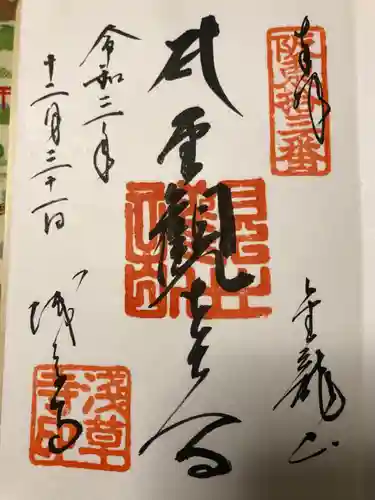 奉拝
坂東拾三番
金龍山
聖觀世音
令和三年
十二月三十一日
浅草寺
淺草寺印